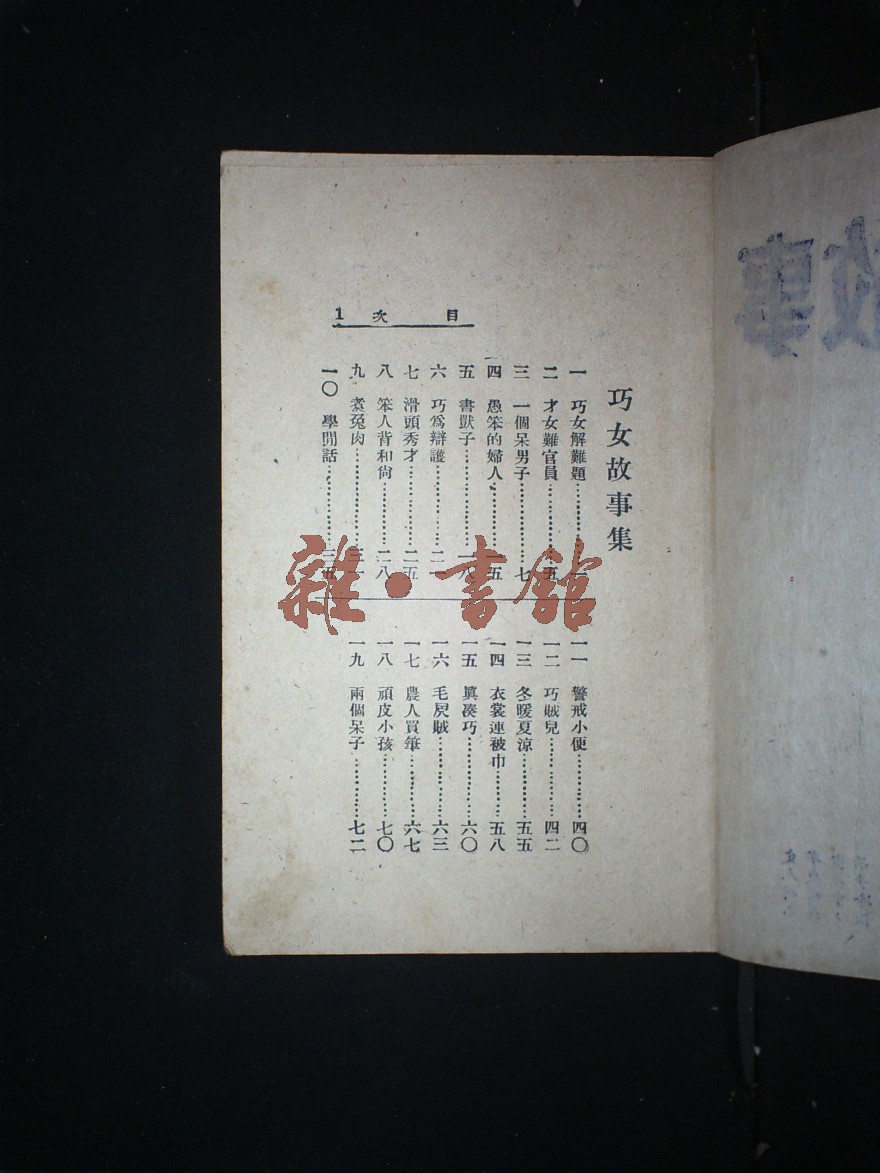 巧女故事集
目次 1
一 巧女解難題…………一
二 才女難官員…………五
三 一個呆男子…………七
四 愚笨的婦人…………一五
五 書獃子…………一八
六 巧爲辯護…………二一
七 滑頭秀才…………二五
八 笨人背和尙…………二八
九 煑兔肉…………三一
一〇 學閒話…………三五
一一 警戒小便…………四〇
一二 巧賊兒…………四二
一三 冬暖夏涼…………五五
一四 衣裳連被巾…………五八
一五 眞湊巧…………六〇
一六 毛屄賊…………六三
一七 農人買筆…………六七
一八 頑皮小孩…………七〇
一九 兩個呆子…………七二
雜·書館
故事